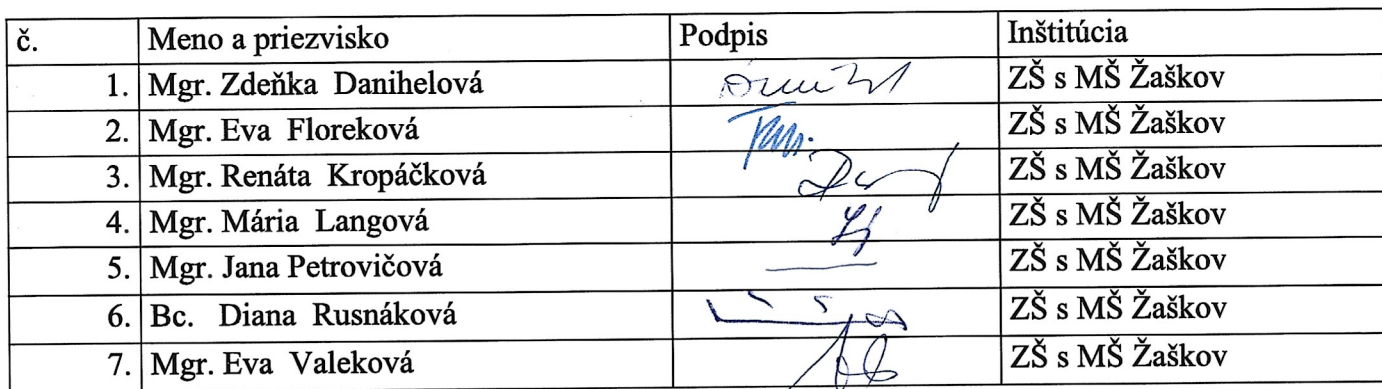 č. Meno a priezvisko Podpis Inštitúcia
1. Mgr. Zdeňka Danihelová ZŠ s MŠ Žaškov
2. Mgr. Eva Floreková ZŠ s MŠ Žaškov
3. Mgr. Renáta Kropáčková ZŠ s MŠ Žaškov
4. Mgr. Mária Langová ZŠ s MŠ Žaškov
5. Mgr. Jana Petrovičová ZŠ s MŠ Žaškov
6. Bc. Diana Rusnáková ZŠ s MŠ Žaškov
7. Mgr. Eva Valeková ZŠ s MŠ Žaškov